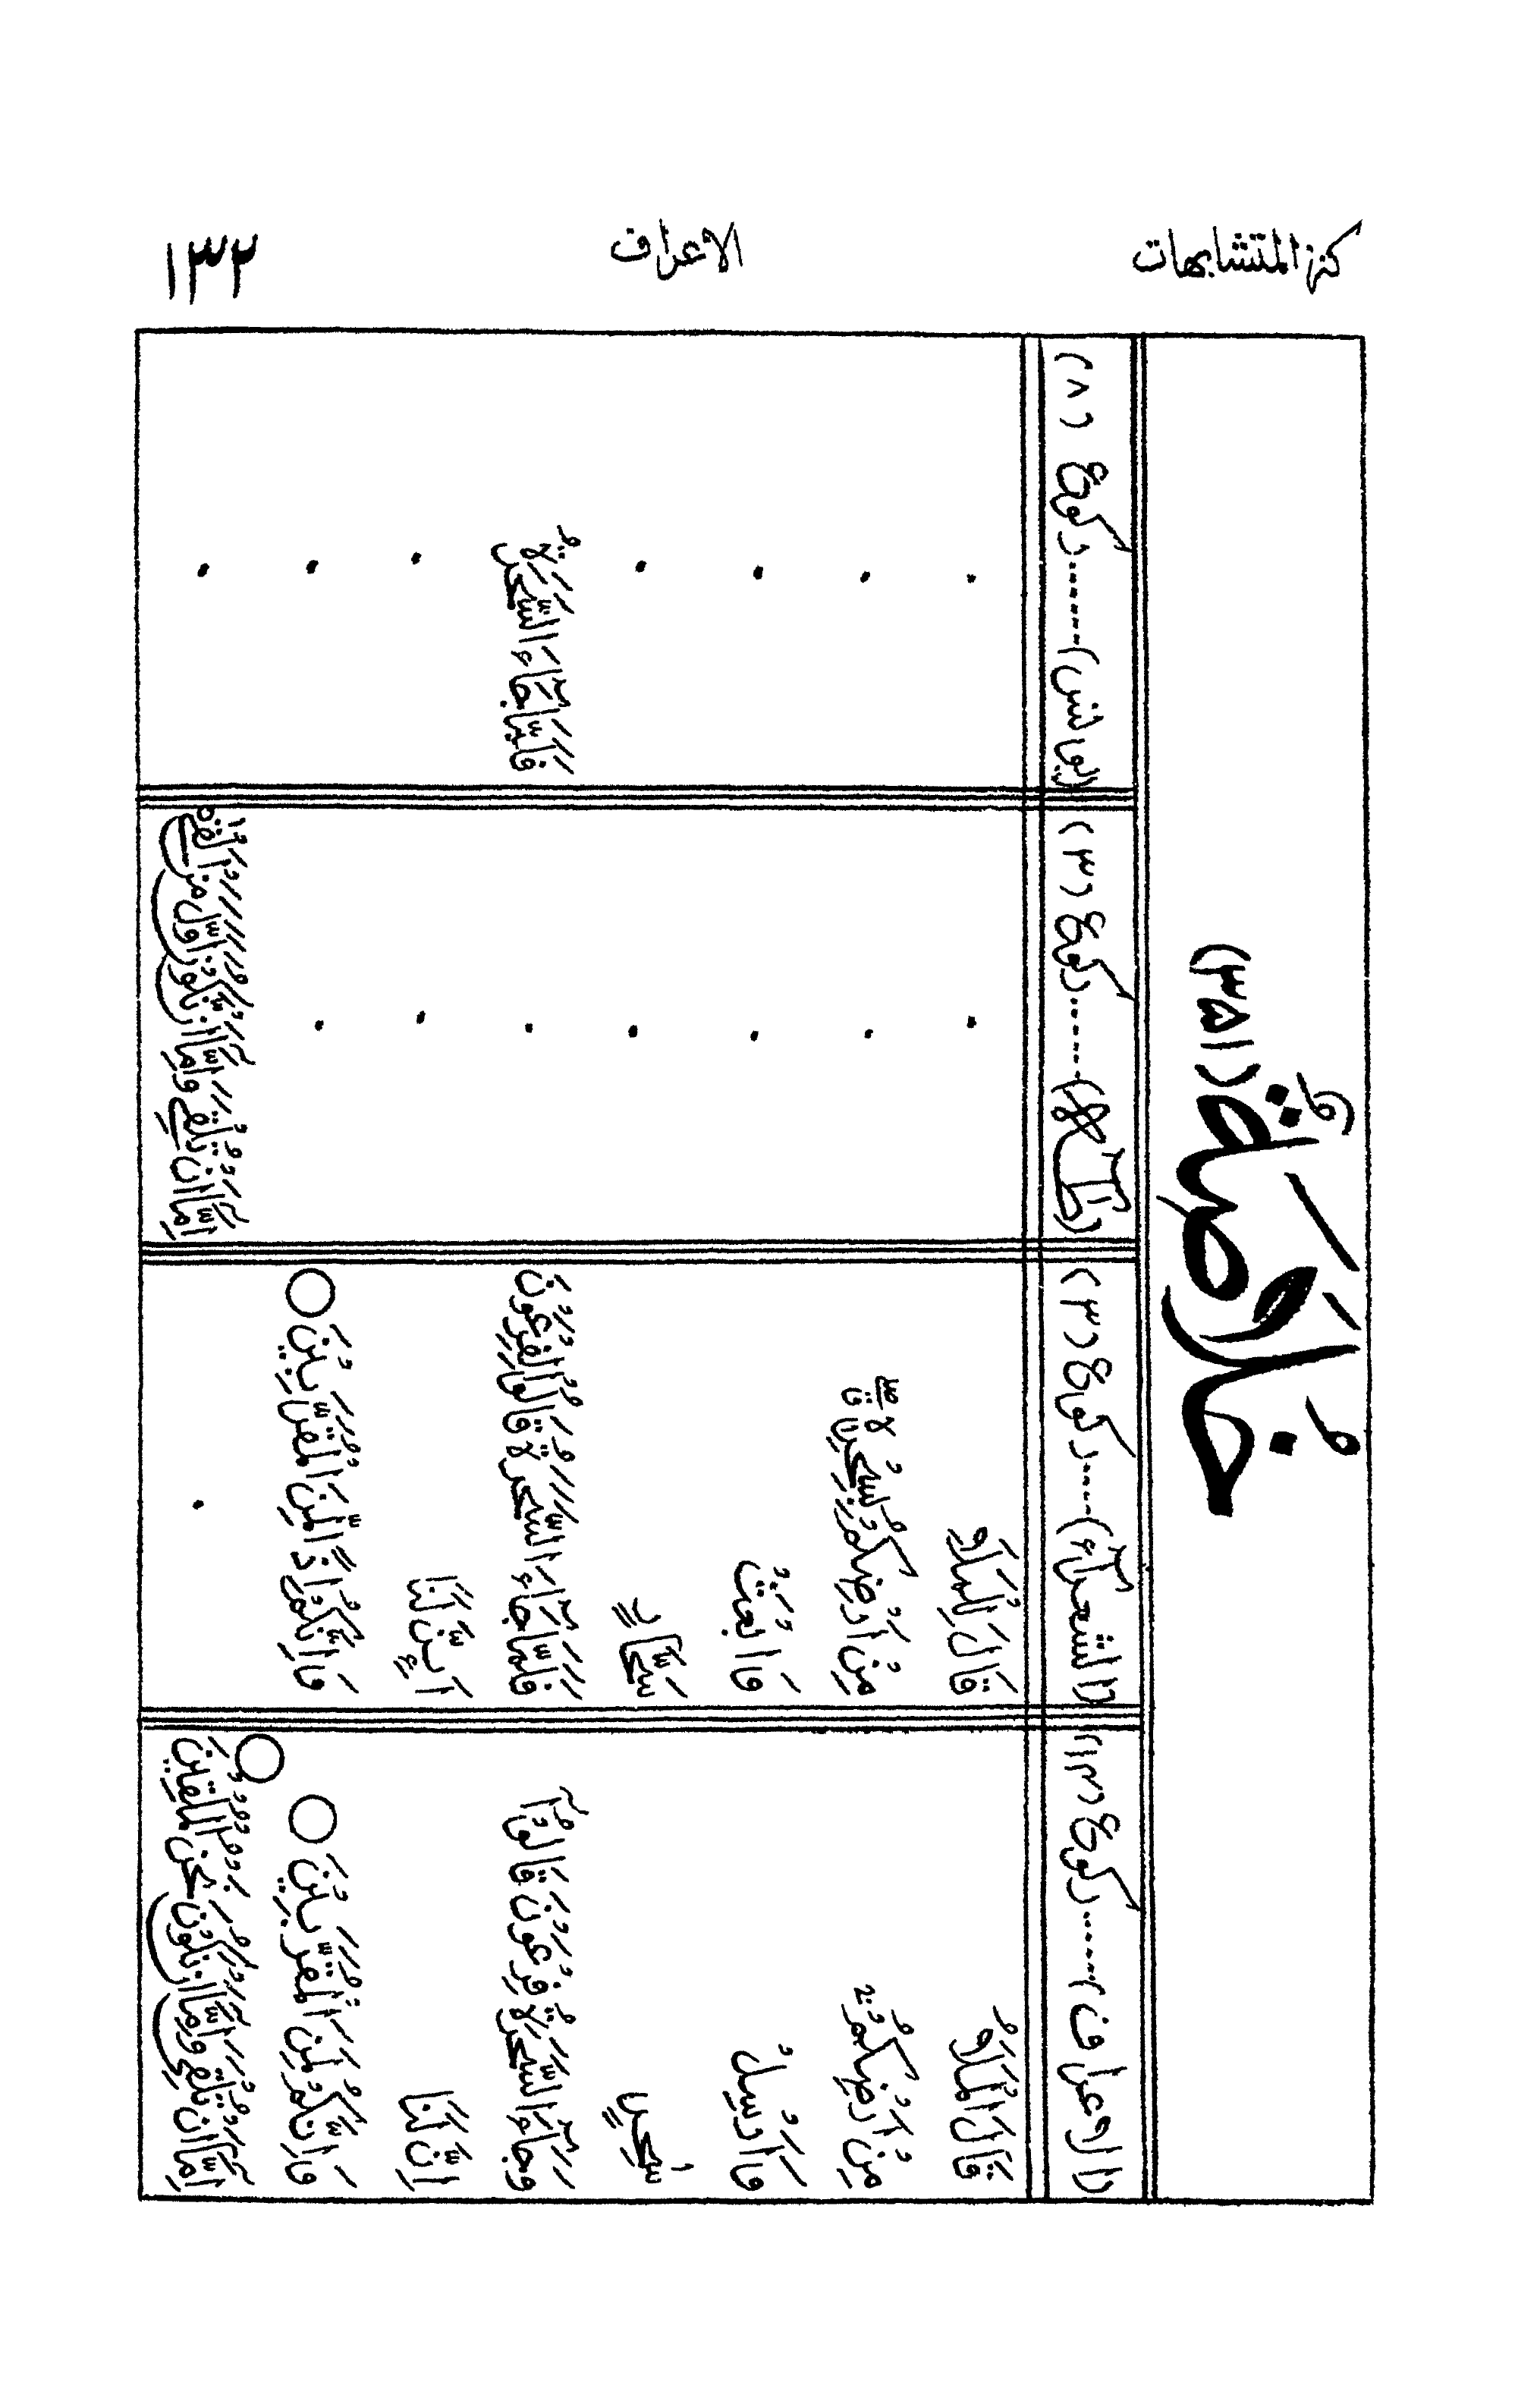 كنز المتشابهات الاعراف ۱۳۲
خُلَاصَةٌ (۳۵۱)
(الاعراف)......ركوع (۱۴) (الشعرآء)......ركوع (۳) (طٰهٰ)......ركوع (۳) (یونس)......ركوع (۸)
قَالَ الْمَلَاُ قَالَ لِلْمَلَاِ . .
مِّنْ اَرْضِكُمْ ۚ مِّنْ اَرْضِكُمْ بِسِحْرِهٖ ۖۗ . .
وَاَرْسِلْ وَابْعَثْ . .
سٰحِرٍ سَحَّارٍ . .
وَجَآءَ السَّحَرَةُ فِرْعَوْنَ قَالُوْٓا فَلَمَّا جَآءَ السَّحَرَةُ قَالُوْا لِفِرْعَوْنَ . فَلَمَّا جَآءَ السَّحَرَةُ
اِنَّ لَنَا اَئِنَّ لَنَا . .
وَاِنَّكُمْ لَمِنَ الْمُقَرَّبِيْنَ ○ وَاِنَّكُمْ اِذًا لَّمِنَ الْمُقَرَّبِيْنَ ○ . .
اِمَّآ اَنْ تُلْقِيَ وَاِمَّآ اَنْ نَّكُوْنَ نَحْنُ الْمُلْقِيْنَ ○ . اِمَّآ اَنْ تُلْقِيَ وَاِمَّآ اَنْ نَّكُوْنَ اَوَّلَ مَنْ اَلْقٰى .